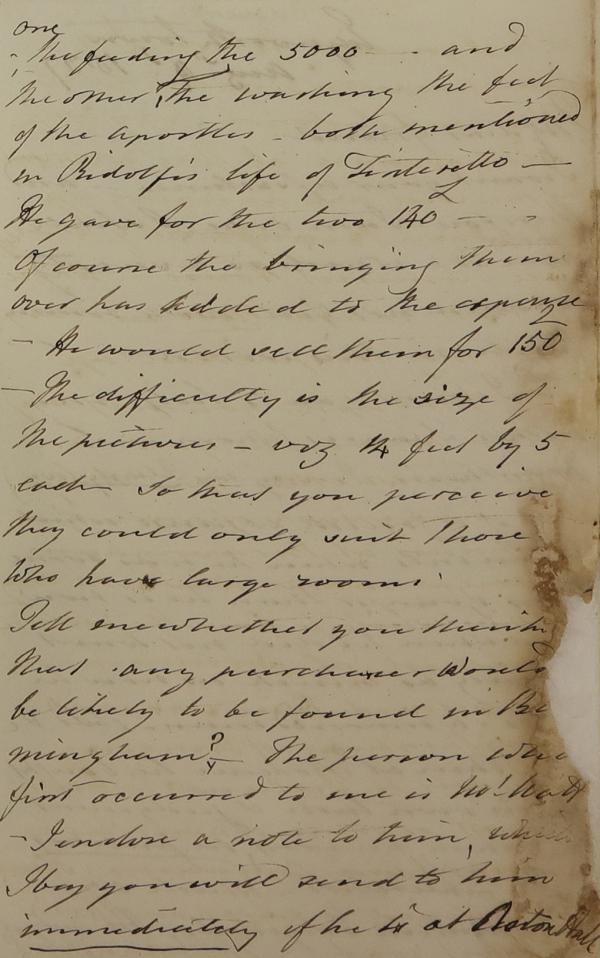 one
- the feeding the 5000 - - and
the other, The washing the feet
of the apostles - both mentioned
in Ridolfi's life of Tintoretto -
He gave for the two 140£ -
Of course the bringing them
over has added to the expense
- He would sell them for 150£
- The difficulty is the size of
the pictures - viz 14 feet by 5
each - So that you perceive
they could only suit those
who have large rooms.
Tell me whether you think
that any purchaser would
be likely to be found in Bi
mingham? - The person who
first occurred to me is Mr. Watt
- I enclose a note to him, which
I beg you will send to him
immediately if he is at Aston Hall